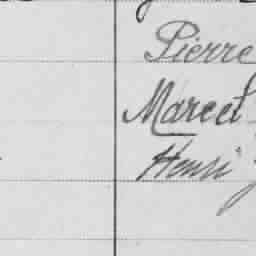 Pierre
Marcel
Henri